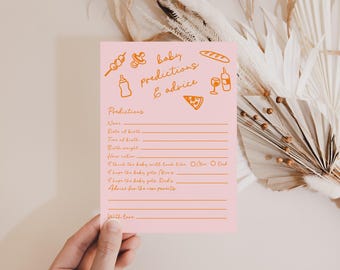 baby
predictions
& advice
Predictions
Name
Date of birth
Time of birth
Birth weight
Hair color
I think the baby will look like: Mom Dad
I hope the baby gets Mom's
I hope the baby gets Dad's
Advice for the new parents
With love